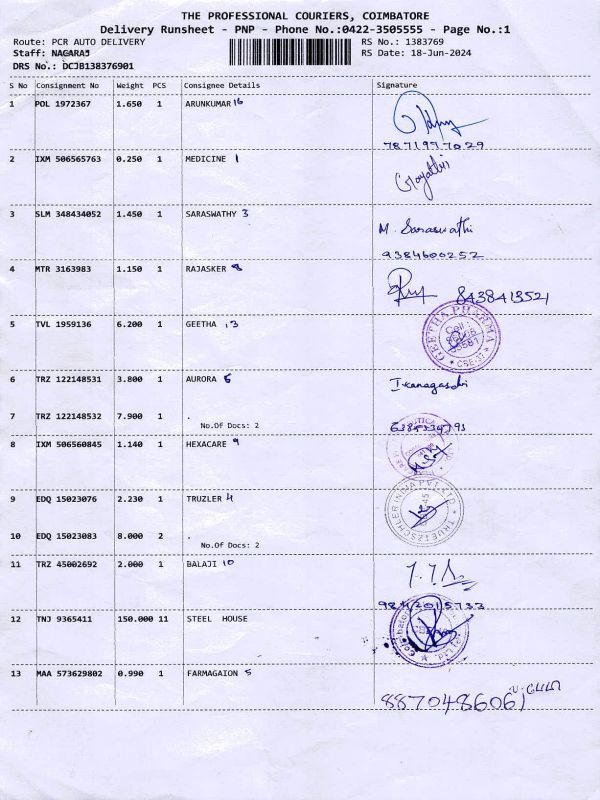 THE PROFESSIONAL COURIERS, COIMBATORE
Delivery Runsheet - PNP - Phone No.:0422-3505555 - Page No.:1
Route: PCR AUTO DELIVERY RS No.: 1383769
Staff: NAGARAJ RS Date: 18-Jun-2024
DRS No.: DCJB138376901
S No Consignment No Weight PCS Consignee Details Signature
1 POL 1972367 1.650 1 ARUNKUMAR 16
7871977029
2 IXM 506565763 0.250 1 MEDICINE 1 Gayathri
3 SLM 348434052 1.450 1 SARASWATHY 3 M. Saraswathi
9384600252
4 MTR 3163983 1.150 1 RAJASKER 8 8438413521
5 TVL 1959136 6.200 1 GEETHA 13 GEETHA PHARMA
6 TRZ 122148531 3.800 1 AURORA 6
7 TRZ 122148532 7.900 1 .
No.Of Docs: 2
8 IXM 506560845 1.140 1 HEXACARE 9
9 EDQ 15023076 2.230 1 TRUZLER 4 TRUETZSCHLER INDIA PVT LTD
10 EDQ 15023083 8.000 2 .
No.Of Docs: 2
11 TRZ 45002692 2.000 1 BALAJI 10
9842015733
12 TNJ 9365411 150.000 11 STEEL HOUSE
13 MAA 573629802 0.990 1 FARMAGAION 5
8870486061